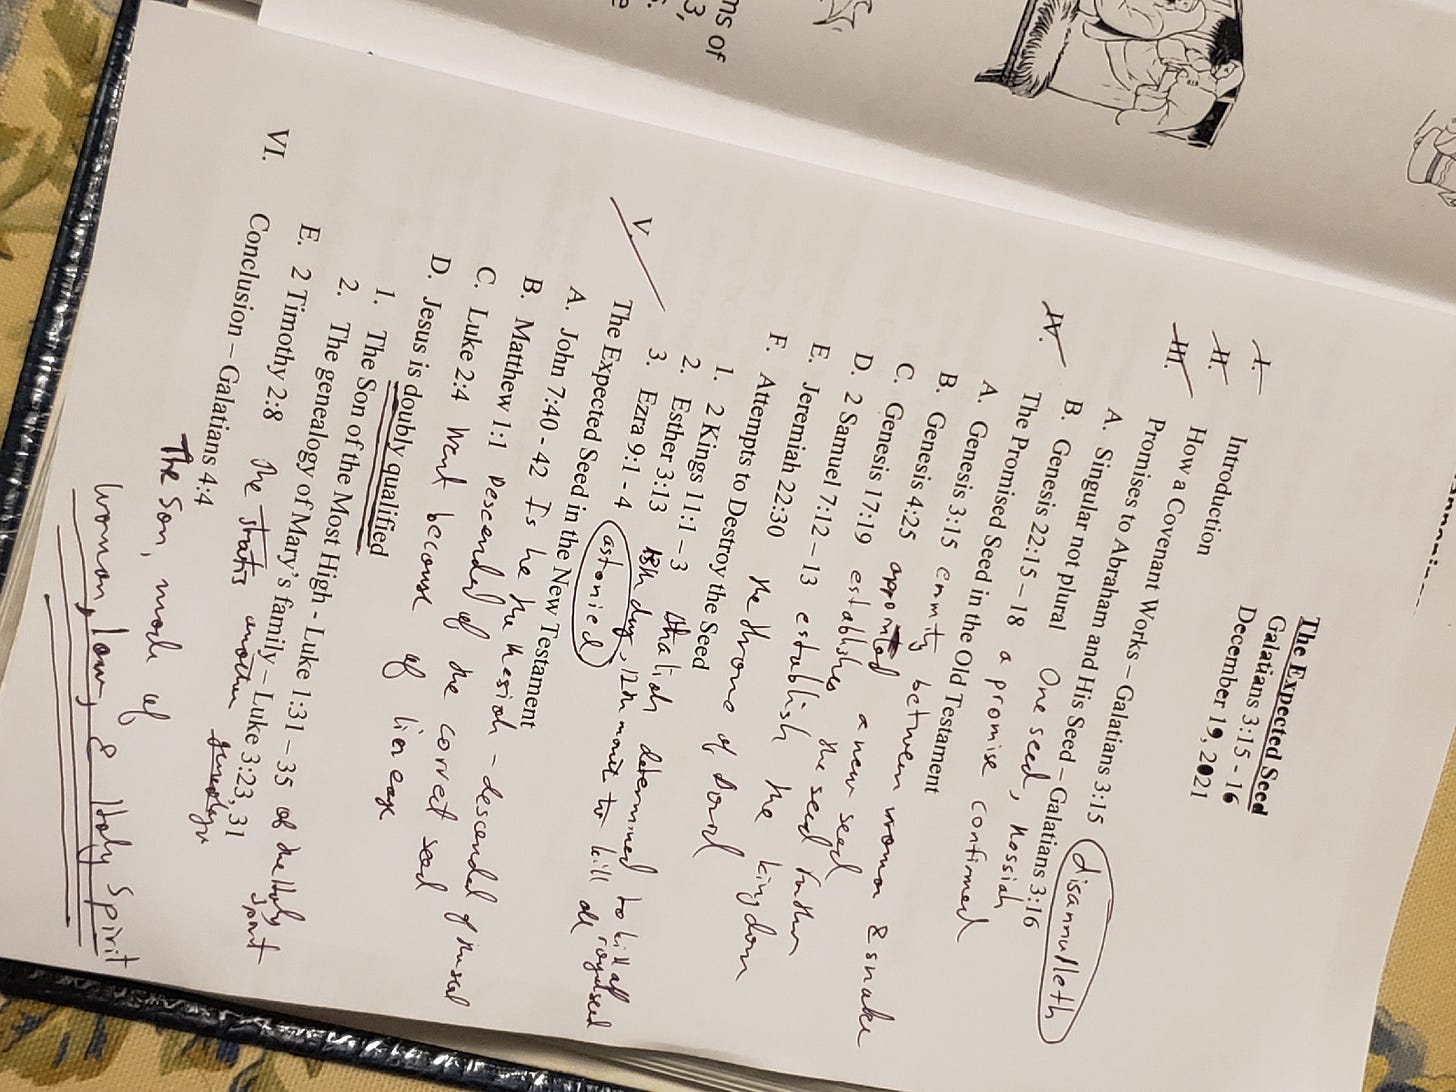 The Expected Seed
Galatians 3:15 - 16
December 19, 2021
I. Introduction
II. How a Covenant Works – Galatians 3:15 disannulleth
III. Promises to Abraham and His Seed – Galatians 3:16
A. Singular not plural One seed, Messiah
B. Genesis 22:15 – 18 a promise confirmed
IV. The Promised Seed in the Old Testament
A. Genesis 3:15 enmity between woman & snake
B. Genesis 4:25 appointed a new seed
C. Genesis 17:19 establishes the seed
D. 2 Samuel 7:12 – 13 establish the kingdom
E. Jeremiah 22:30 the throne of David
F. Attempts to Destroy the Seed
1. 2 Kings 11:1 – 3 Athaliah determined to kill all royal seed
2. Esther 3:13 13th day, 12th month to kill all
3. Ezra 9:1 - 4 astonied
V. The Expected Seed in the New Testament
A. John 7:40 - 42 Is he the Messiah – descended of
B. Matthew 1:1 Descended of the correct seed
C. Luke 2:4 Went because of lineage
D. Jesus is doubly qualified
1. The Son of the Most High - Luke 1:31 – 35 of the Holy Spirit
2. The genealogy of Mary's family – Luke 3:23, 31
E. 2 Timothy 2:8 another
VI. Conclusion – Galatians 4:4
The Son, made of
woman, law, & Holy Spirit
ns of
3,